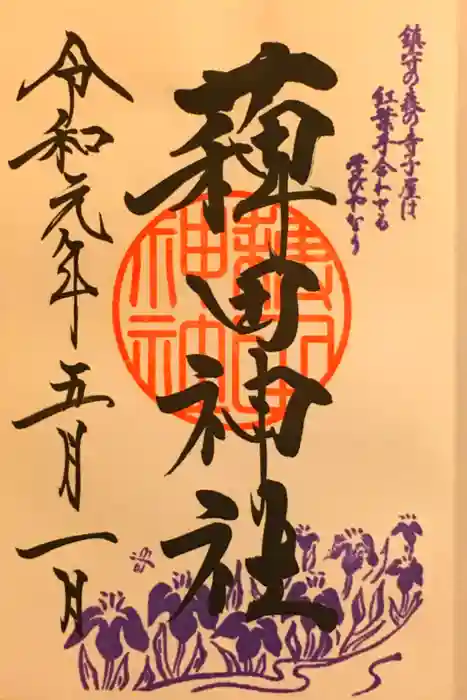 鎮守の森の寺子屋は
紅葉手合わせる
学びやなり
薭田神社
薭田
神社
令和元年五月一日